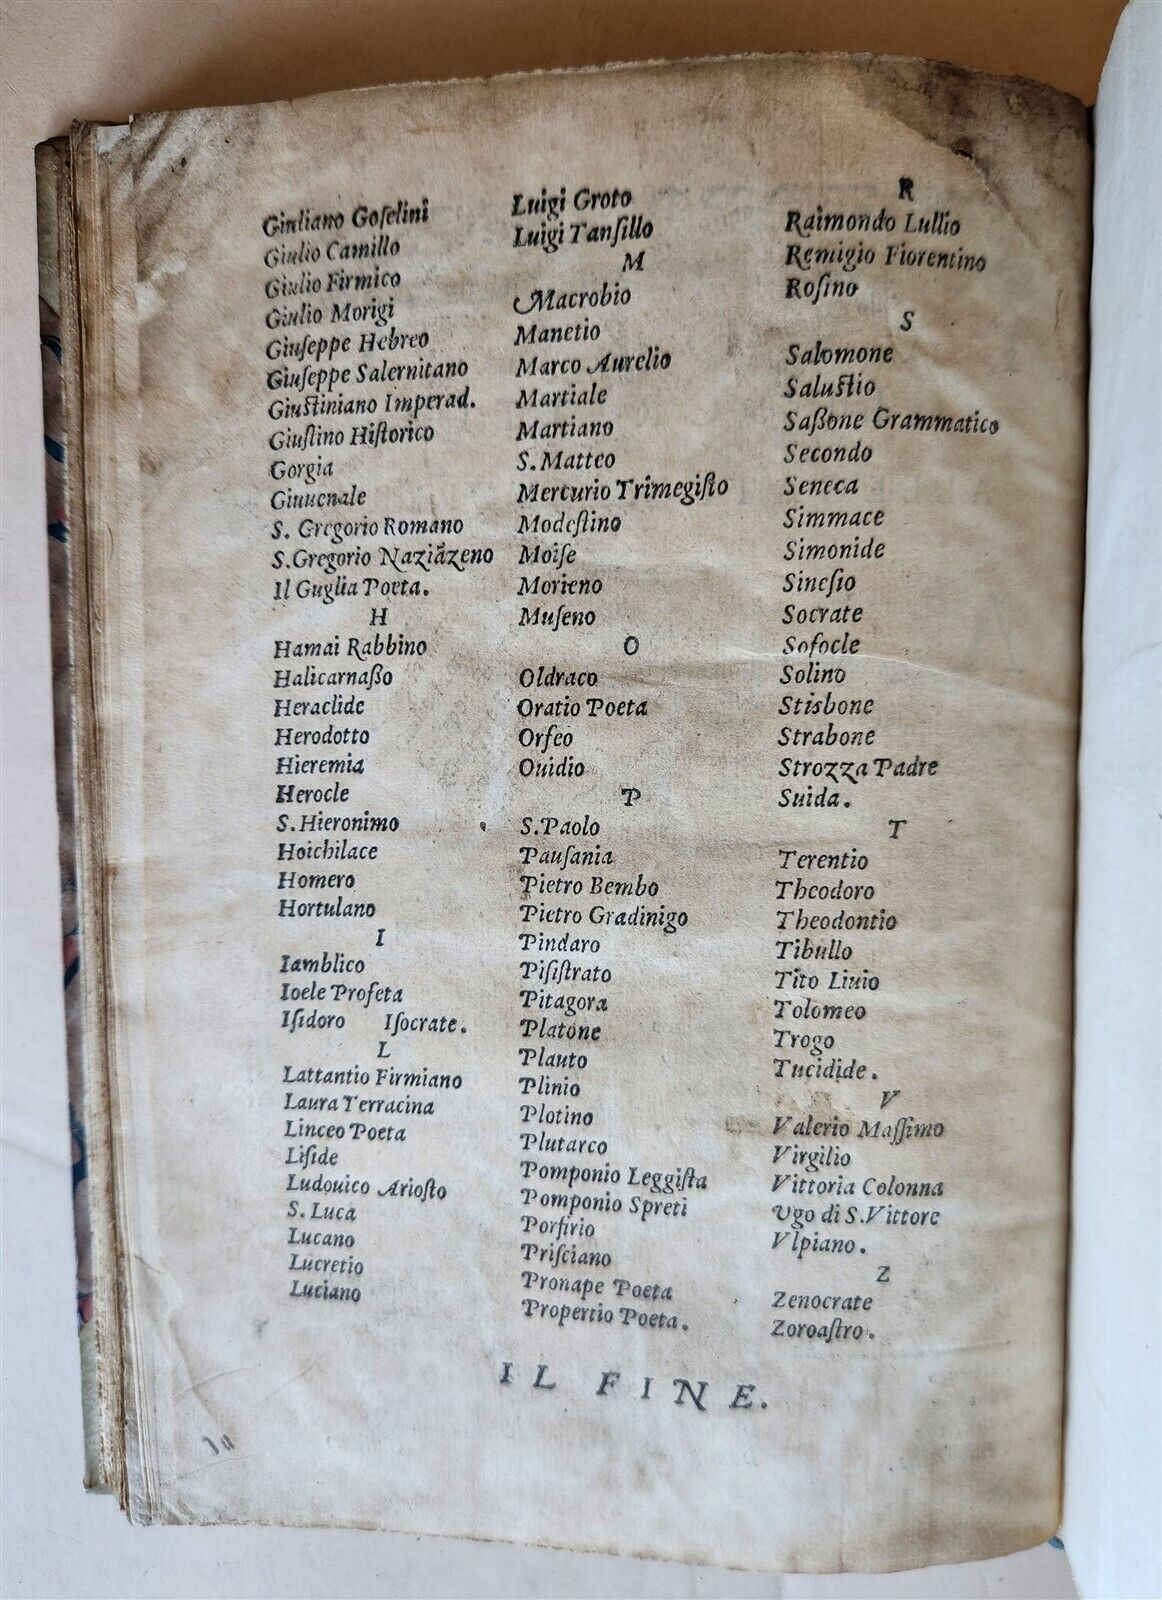 Giuliano Goſelini
Giulio Camillo
Giulio Firmico
Giulio Morigi
Giuſeppe Hebreo
Giuſeppe Salernitano
Giuſtiniano Imperad.
Giuſtino Hiſtorico
Gorgia
Giuuenale
S. Gregorio Romano
S. Gregorio Naziãzeno
Il Guglia Poeta.
H
Hamai Rabbino
Halicarnaßo
Heraclide
Herodotto
Hieremia
Herocle
S. Hieronimo
Hoichilace
Homero
Hortulano
I
Iamblico
Ioele Profeta
Iſidoro Iſocrate.
L
Lattantio Firmiano
Laura Terracina
Linceo Poeta
Liſide
Ludouico Arioſto
S. Luca
Lucano
Lucretio
Luciano
Luigi Groto
Luigi Tanſillo
M
Macrobio
Manetio
Marco Aurelio
Martiale
Martiano
S. Matteo
Mercurio Trimegiſto
Modeſtino
Moiſe
Morieno
Muſeno
O
Oldraco
Oratio Poeta
Orfeo
Ouidio
P
S. Paolo
Pauſania
Pietro Bembo
Pietro Gradinigo
Pindaro
Piſiſtrato
Pitagora
Platone
Plauto
Plinio
Plotino
Plutarco
Pomponio Leggiſta
Pomponio Spreti
Porfirio
Priſciano
Pronape Poeta
Propertio Poeta.
R
Raimondo Lullio
Remigio Fiorentino
Roſino
S
Salomone
Saluſtio
Saßone Grammatico
Secondo
Seneca
Simmace
Simonide
Sineſio
Socrate
Sofocle
Solino
Stisbone
Strabone
Strozza Padre
Suida.
T
Terentio
Theodoro
Theodontio
Tibullo
Tito Liuio
Tolomeo
Trogo
Tucidide.
V
Valerio Maſſimo
Virgilio
Vittoria Colonna
Vgo di S. Vittore
Vlpiano.
Z
Zenocrate
Zoroaſtro.
IL FINE.